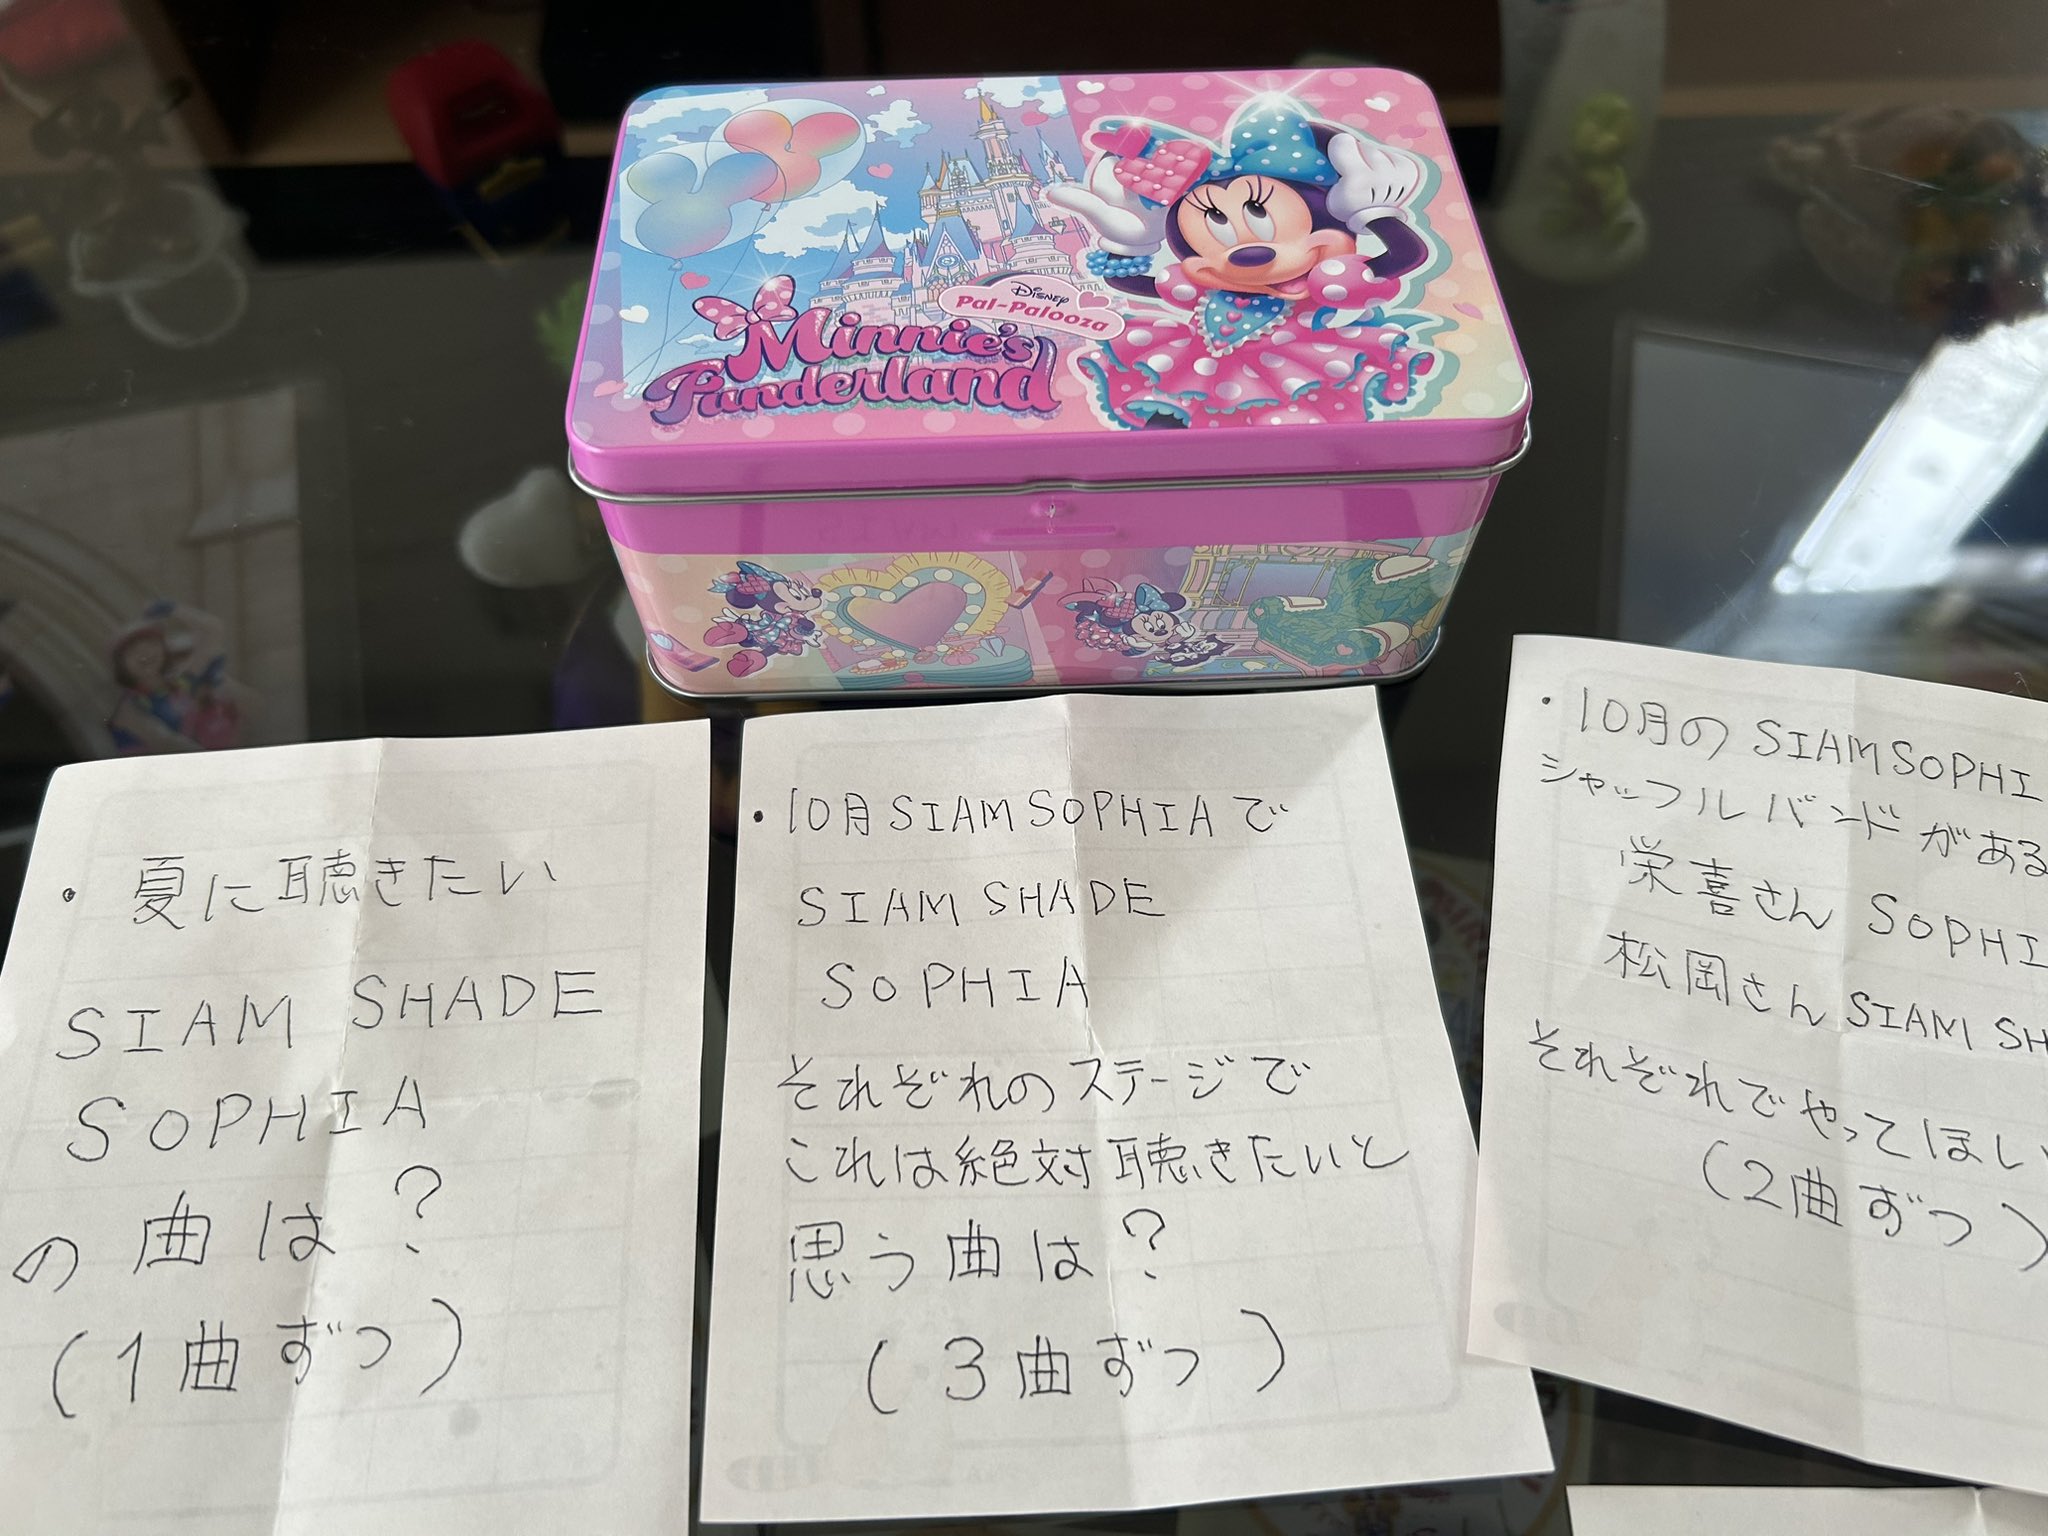 Disney
Pal-Palooza
Minnie's
Funderland
・夏に聴きたい
SIAM SHADE
SOPHIA
の曲は?
(1曲ずつ)
・10月SIAMSOPHIAで
SIAM SHADE
SOPHIA
それぞれのステージで
これは絶対聴きたいと
思う曲は?
(3曲ずつ)
・10月のSIAMSOPHI
シャッフルバンドがある
栄喜さん SOPHI
松岡さん SIAM SH
それぞれでやってほしい
(2曲ずつ)